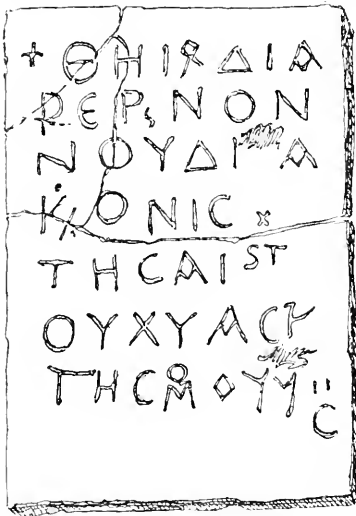 + ΘΗΚΔΙΑ
ΦΕΡ, ΝΟΝ
ΝΟΥΔΙΑ
ΚΟΝΙC ×
ΤΗCΑΙ ST
ΟΥΧΥΑC
ΤΗCΜΟΥ